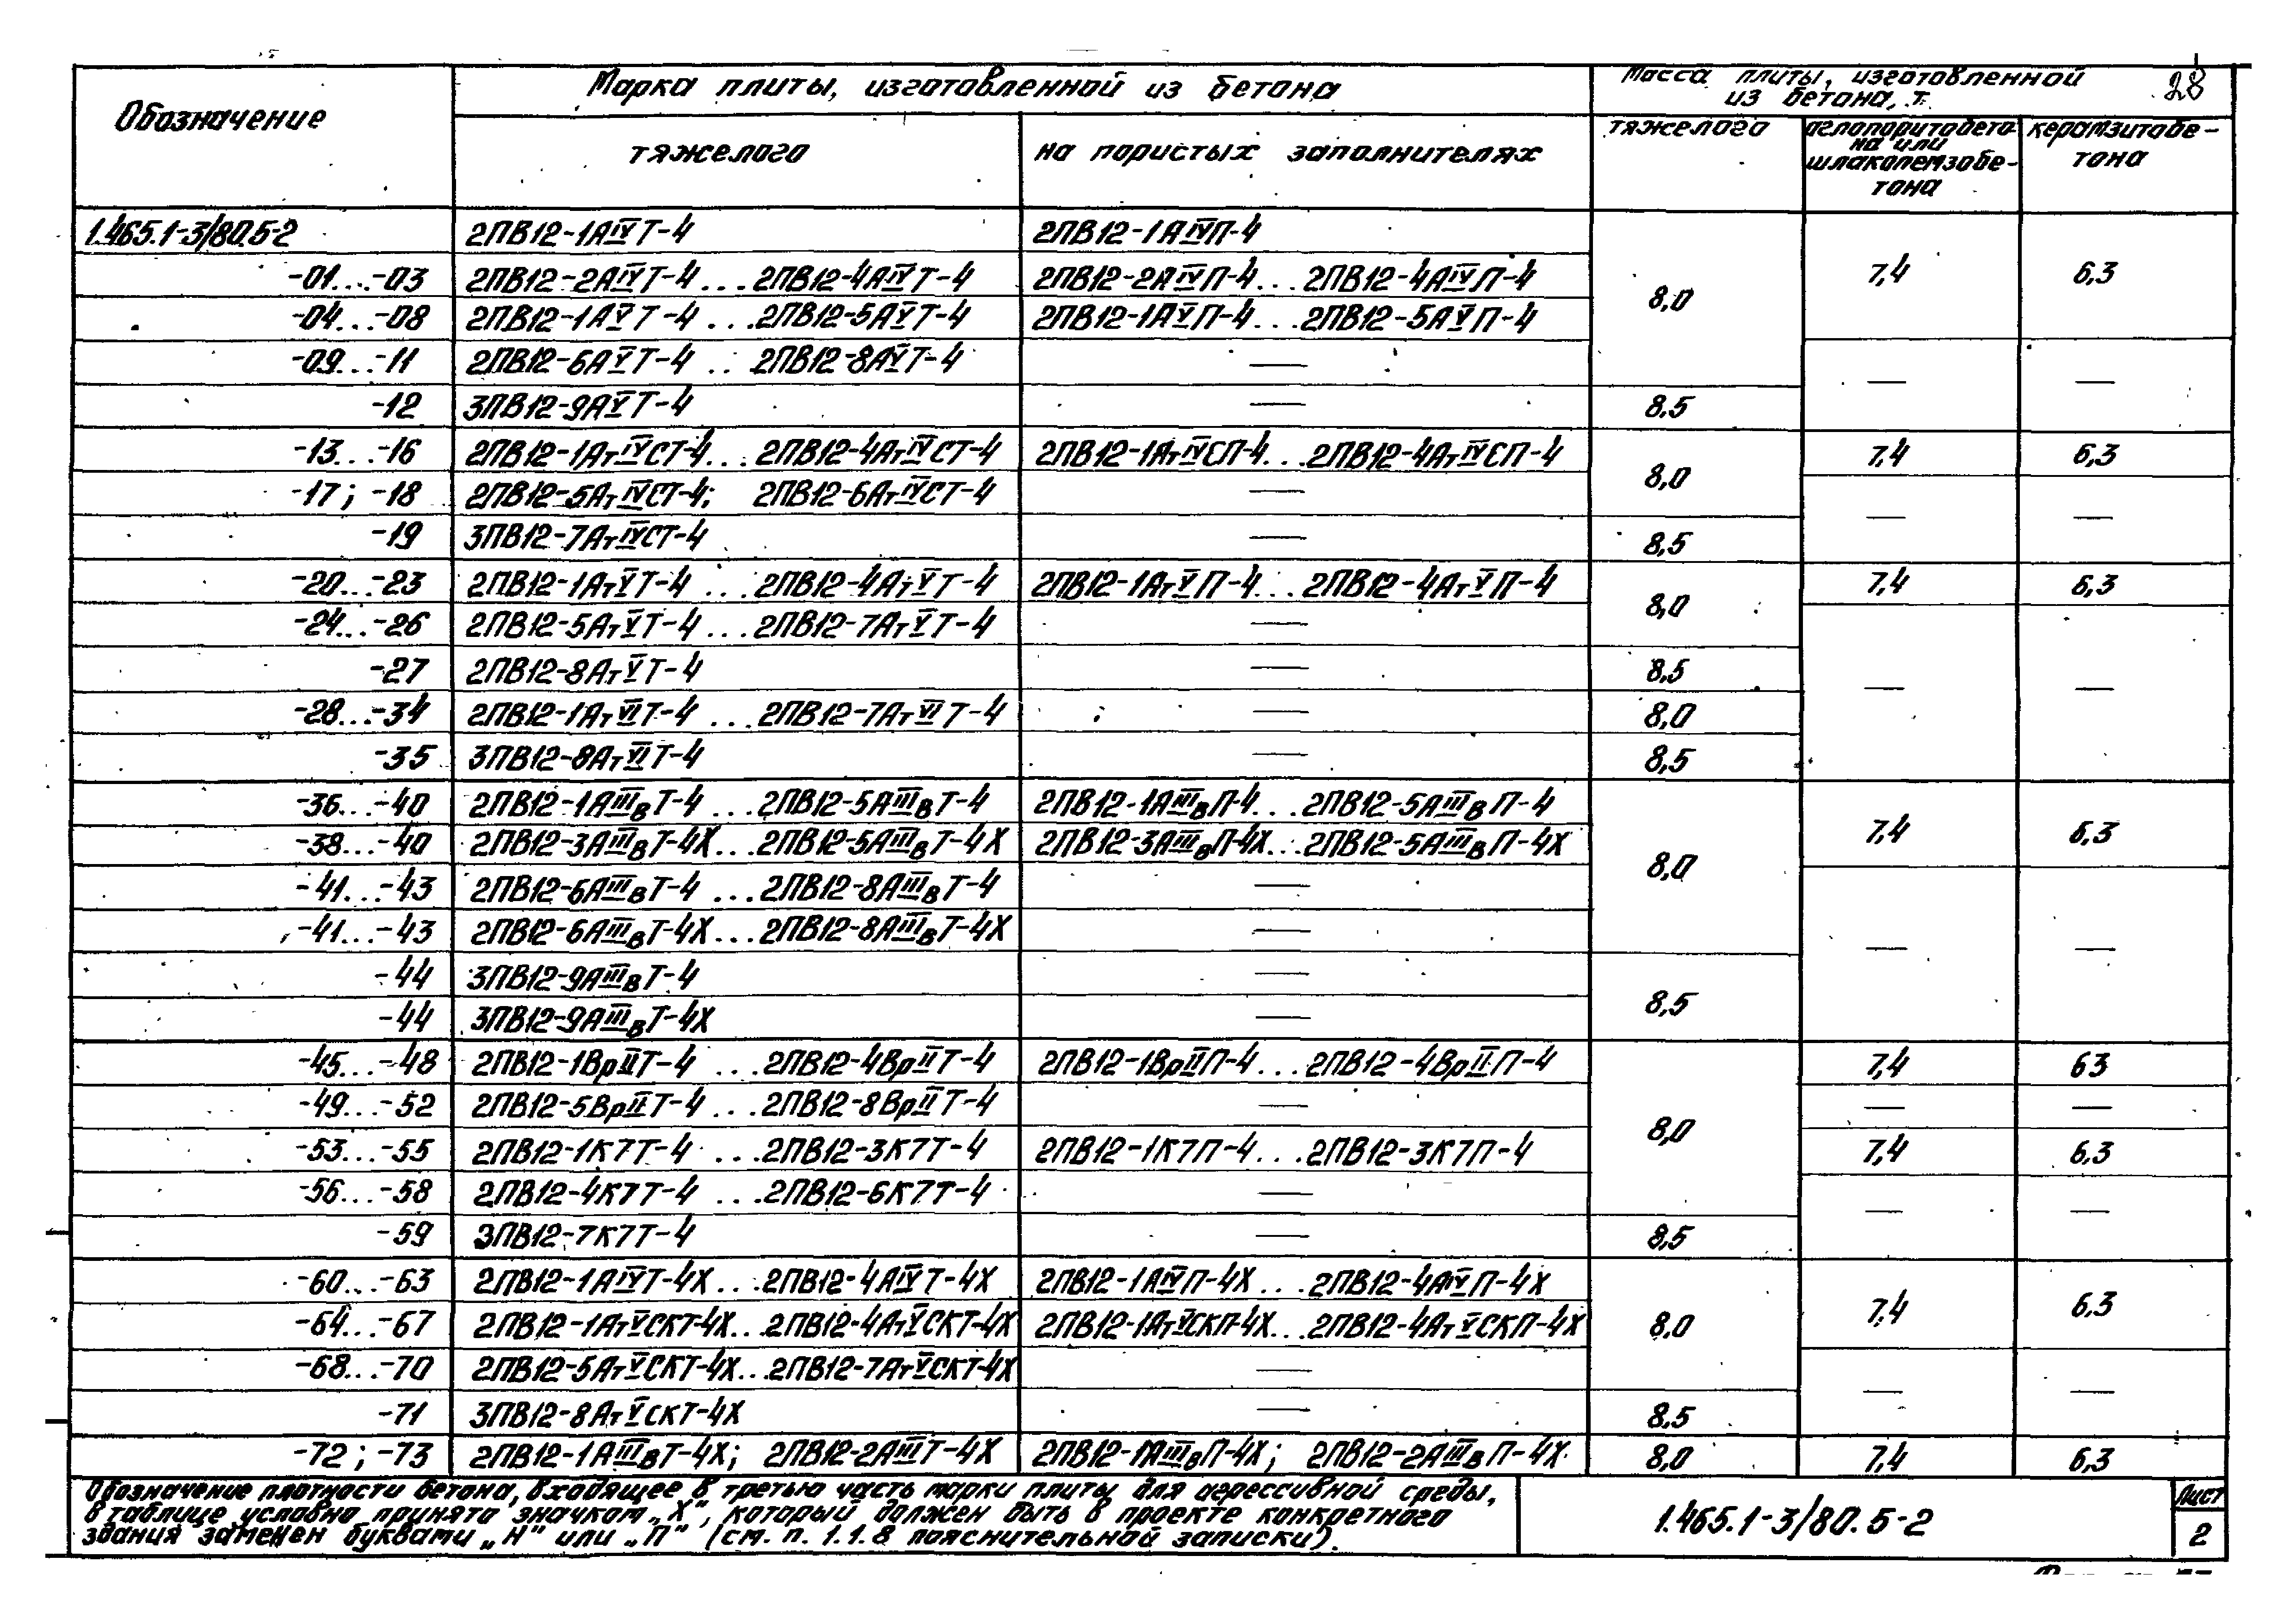 28
Обозначение
Марка плиты, изготовленной из бетона
Масса плиты, изготовленной
из бетона, т.
тяжелого
на пористых заполнителях
тяжелого
аглопоритобето-
на или
шлакопемзобе-
тона
керамзитобе-
тона
1.465.1-3/80.5-2 2ПВ12-1АIVТ-4 2ПВ12-1АIVП-4
-01...-03 2ПВ12-2АIVТ-4 ...2ПВ12-4АIVТ-4 2ПВ12-2АIVП-4...2ПВ12-4АIVП-4 8,0 7,4 6,3
-04...-08 2ПВ12-1АVТ-4 ...2ПВ12-5АVТ-4 2ПВ12-1АVП-4...2ПВ12-5АVП-4
-09...-11 2ПВ12-6АVТ-4 ...2ПВ12-8АVТ-4 — — —
-12 3ПВ12-9АVТ-4 — 8,5
-13...-16 2ПВ12-1АтIVСТ-4...2ПВ12-4АтIVСТ-4 2ПВ12-1АтIVСП-4...2ПВ12-4АтIVСП-4 8,0 7,4 6,3
-17; -18 2ПВ12-5АтIVСТ-4; 2ПВ12-6АтIVСТ-4 — — —
-19 3ПВ12-7АтIVСТ-4 — 8,5
-20...-23 2ПВ12-1АтVТ-4 ...2ПВ12-4АтVТ-4 2ПВ12-1АтVП-4...2ПВ12-4АтVП-4 8,0 7,4 6,3
-24...-26 2ПВ12-5АтVТ-4 ...2ПВ12-7АтVТ-4 —
-27 2ПВ12-8АтVТ-4 — 8,5 — —
-28...-34 2ПВ12-1АтVIТ-4 ...2ПВ12-7АтVIТ-4 — 8,0
-35 3ПВ12-8АтVIТ-4 — 8,5
-36...-40 2ПВ12-1АIIIвТ-4 ...2ПВ12-5АIIIвТ-4 2ПВ12-1АIIIвП-4...2ПВ12-5АIIIвП-4 7,4 6,3
-38...-40 2ПВ12-3АIIIвТ-4Х...2ПВ12-5АIIIвТ-4Х 2ПВ12-3АIIIвП-4Х...2ПВ12-5АIIIвП-4Х 8,0
-41...-43 2ПВ12-6АIIIвТ-4 ...2ПВ12-8АIIIвТ-4 —
-41...-43 2ПВ12-6АIIIвТ-4Х...2ПВ12-8АIIIвТ-4Х — — —
-44 3ПВ12-9АIIIвТ-4 — 8,5
-44 3ПВ12-9АIIIвТ-4Х —
-45...-48 2ПВ12-1ВрIIТ-4 ...2ПВ12-4ВрIIТ-4 2ПВ12-1ВрIIП-4...2ПВ12-4ВрIIП-4 7,4 63
-49...-52 2ПВ12-5ВрIIТ-4 ...2ПВ12-8ВрIIТ-4 — 8,0 — —
-53...-55 2ПВ12-1К7Т-4 ...2ПВ12-3К7Т-4 2ПВ12-1К7П-4...2ПВ12-3К7П-4 7,4 6,3
-56...-58 2ПВ12-4К7Т-4 ...2ПВ12-6К7Т-4 — — —
-59 3ПВ12-7К7Т-4 — 8,5
-60...-63 2ПВ12-1АIVТ-4Х...2ПВ12-4АIVТ-4Х 2ПВ12-1АIVП-4Х...2ПВ12-4АIVП-4Х 7,4 6,3
-64...-67 2ПВ12-1АтVСКТ-4Х...2ПВ12-4АтVСКТ-4Х 2ПВ12-1АтVСКП-4Х...2ПВ12-4АтVСКП-4Х 8,0
-68...-70 2ПВ12-5АтVСКТ-4Х...2ПВ12-7АтVСКТ-4Х — — —
-71 3ПВ12-8АтVСКТ-4Х — 8,5
-72; -73 2ПВ12-1АIIIвТ-4Х; 2ПВ12-2АIIIТ-4Х 2ПВ12-1АIIIвП-4Х; 2ПВ12-2АIIIвП-4Х 8,0 7,4 6,3
Обозначение плотности бетона, входящее в третью часть марки плиты для агрессивной среды,
в таблице условно принято значком „Х", который должен быть в проекте конкретного
здания заменен буквами „Н" или „П" (см. п. 1.1.8 пояснительной записки).
1.465.1-3/80.5-2
Лист
2